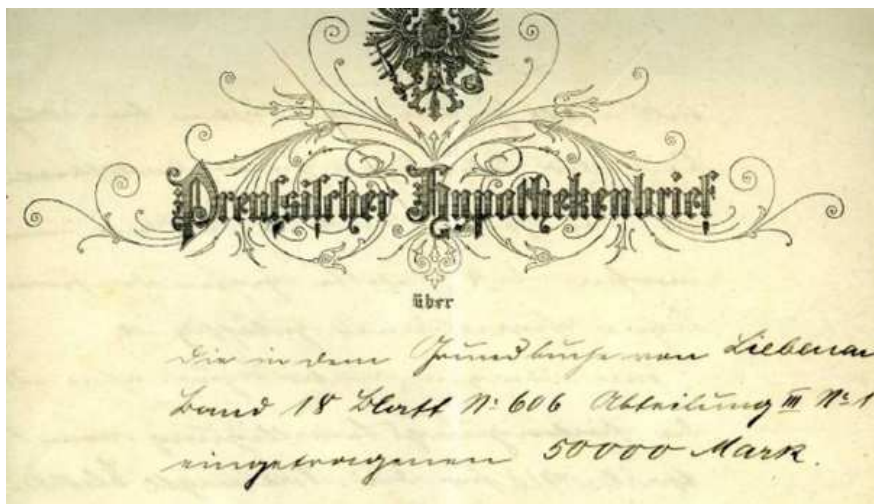 Preuſsiſcher Hypothekenbrief
über
die in dem Grundbuche von Liebenau
Band 18 Blatt No 606 Abteilung III No 1
eingetragenen 50000 Mark.